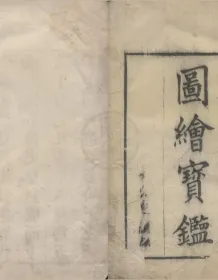 圖繪寶鑑